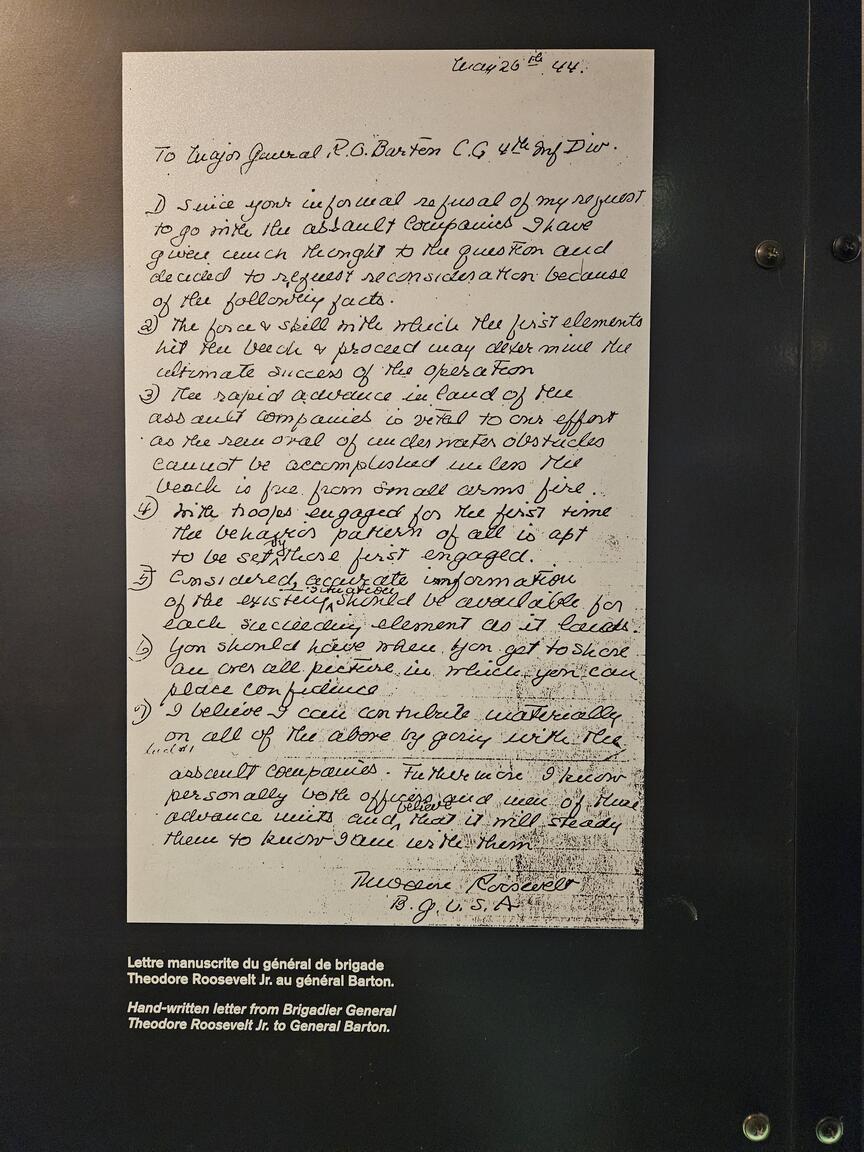 May 26th 44.
To Major General R.O. Barton C.G 4th Inf Div.
1) Since your informal refusal of my request
to go with the assault companies I have
given much thought to the question and
decided to request reconsideration because
of the following facts.
2) The force & skill with which the first elements
hit the beech & proceed may determine the
ultimate success of the operation
3) The rapid advance inland of the
assault companies is vital to our effort
as the removal of underwater obstucles
cannot be accomplished unless the
beach is free from small arms fire.
4) With troops engaged for the first time
the behavior pattern of all is apt
to be set by those first engaged.
5) Considered, accurate information
of the existing situation should be available for
each succeeding element as it lands.
6) You should have when you get to shore
an over all picture in which you can
place confidence
7) I believe I can contribute materially
on all of the above by going with the
assault companies. Furthermore I know
personally both officers and men of these
advance units and believe that it will steady
them to know I am with them
Theodore Roosevelt
B.G.U.S.A
Lettre manuscrite du général de brigade
Theodore Roosevelt Jr. au général Barton.
Hand-written letter from Brigadier General
Theodore Roosevelt Jr. to General Barton.